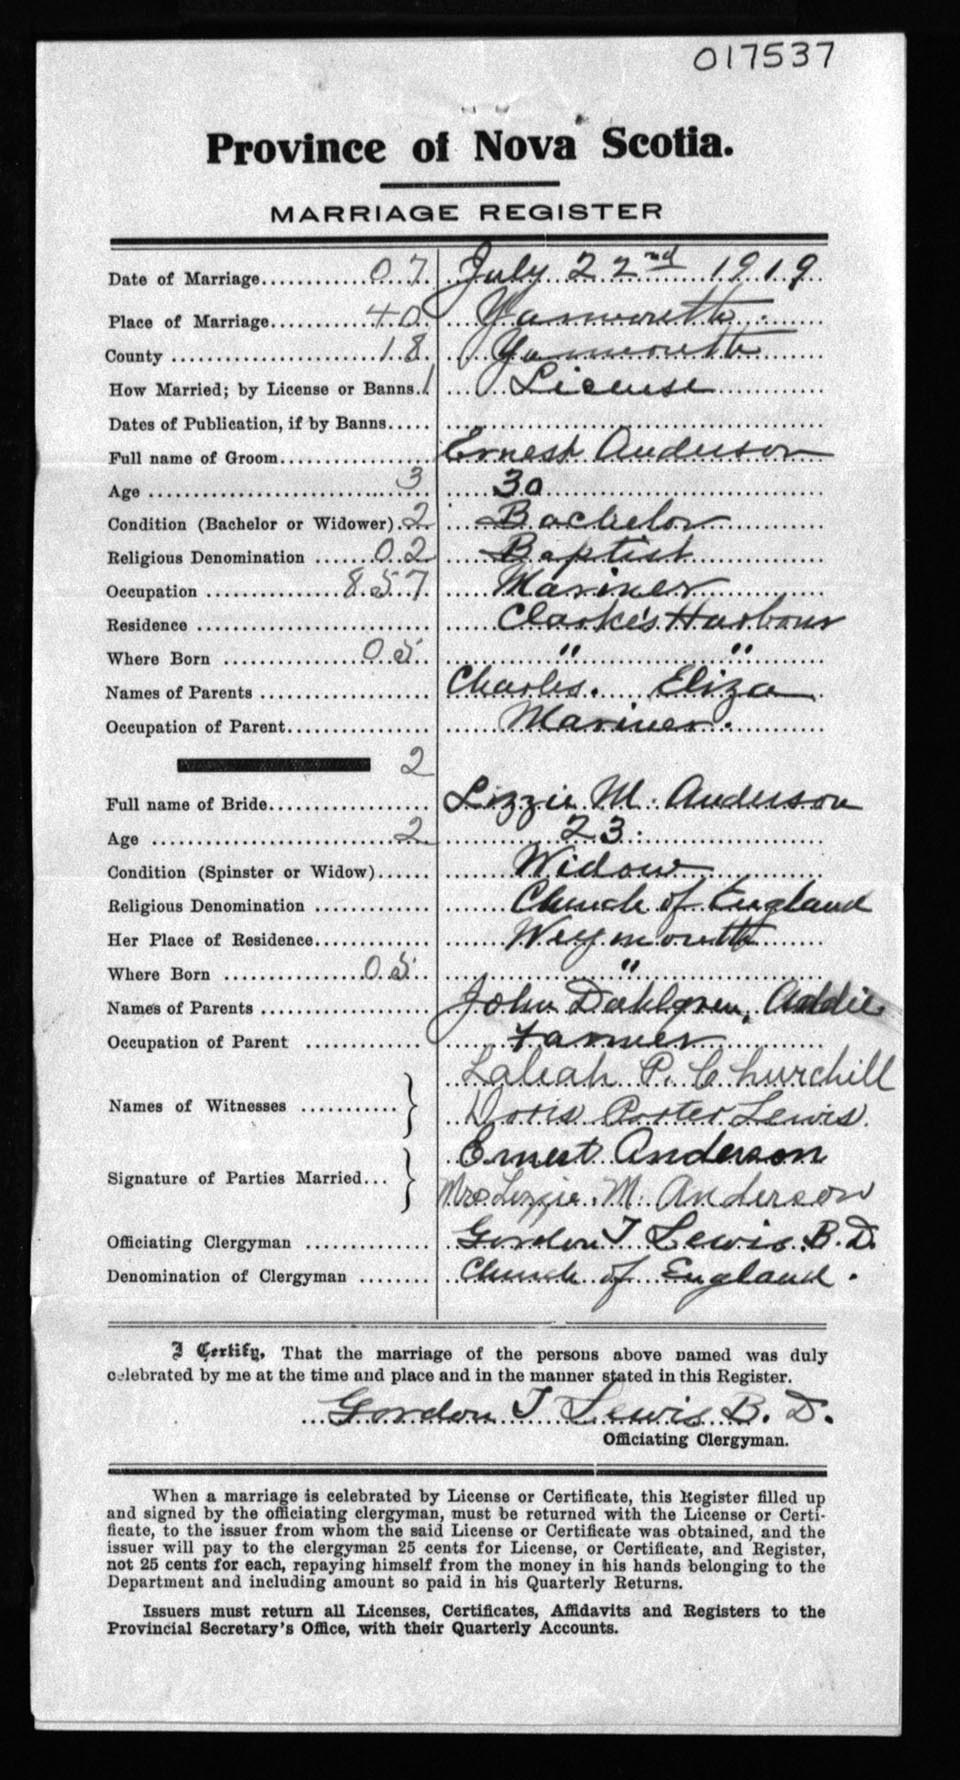 017537
Province of Nova Scotia.
MARRIAGE REGISTER
Date of Marriage............07.. July 22nd 1919
Place of Marriage...........40.. Yarmouth.
County ....................18.. Yarmouth
How Married; by License or Banns..1 License
Dates of Publication, if by Banns.....
Full name of Groom................. Ernest Anderson
Age ..............................3.. 30
Condition (Bachelor or Widower).2.. Bachelor
Religious Denomination ......02.. Baptist
Occupation ...............857.. Mariner
Residence ........................... Clarke's Harbour
Where Born ...............05.. " "
Names of Parents ................... Charles. Eliza
Occupation of Parent................. Mariner.
2
Full name of Bride.................. Lizzie M. Anderson
Age ............................2.. 23.
Condition (Spinster or Widow)...... Widow
Religious Denomination ............ Church of England
Her Place of Residence............. Weymouth
Where Born ...............05.. "
Names of Parents ................... John Dahlgren, Addie
Occupation of Parent ............. Farmer
Laleah P. Churchill
Names of Witnesses ...........}
Doris Porter Lewis.
Ernest Anderson
Signature of Parties Married...}
Mrs Lizzie. M. Anderson
Officiating Clergyman ............. Gordon T Lewis. B.D.
Denomination of Clergyman ........ Church of England.
I Certify, That the marriage of the persons above named was duly
celebrated by me at the time and place and in the manner stated in this Register.
Gordon T Lewis B. D.
Officiating Clergyman.
When a marriage is celebrated by License or Certificate, this Register filled up
and signed by the officiating clergyman, must be returned with the License or Certi-
ficate, to the issuer from whom the said License or Certificate was obtained, and the
issuer will pay to the clergyman 25 cents for License, or Certificate, and Register,
not 25 cents for each, repaying himself from the money in his hands belonging to the
Department and including amount so paid in his Quarterly Returns.
Issuers must return all Licenses, Certificates, Affidavits and Registers to the
Provincial Secretary's Office, with their Quarterly Accounts.